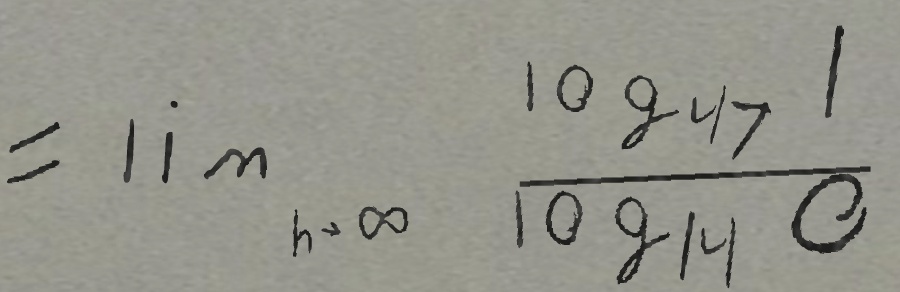 = lim_{h→∞} \frac{log_{47} 1}{log_{14} e}